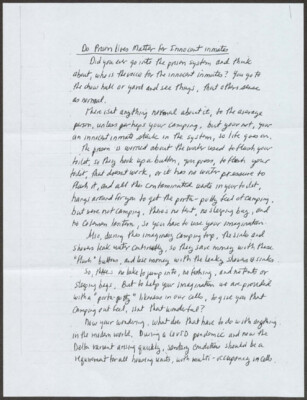 Do Prison lives Matter for Innocent inmates
Did you ever go into the prison system and think
about, who is the voice for the innocent inmates? You go to
the chow hall or yard and see things, that others sense
as normal.
There isn't anything normal about it, to the average
person, unless perhaps your camping. But your not, your
an innocent inmate stuck in the system, so life goes on.
The prison is worried about the water used to flush your
toilet, so they hook up a button, you press, to flush your
toilet, that doesn't work, or it has no water pressure to
flush it, and all this contaminated waste in your toilet,
hangs around for you to get the porter-potty feel of camping,
but were not camping. There's no tent, no sleeping bag, and
no Coleman lantern, so you have to use your imagination.
Also, during this imaginary camping trip, the sinks and
showers leak water continually, so they save money with these
"Push" buttons, and lose money with the leaky showers & sinks.
So, there's no lake to jump into, no fishing, and no tents or
sleeping bags. But to help your imagination we are provided
with a "porta-potty" likeness in our cells, to give you that
camping out feel, isn't that wonderful?
Now your wondering, what does that have to do with anything
in the modern world. During a COVID pandemic and now the
Delta variant arising quickly, sanitary conditions should be a
requirement for all housing units, with multi-occupancy in cells.